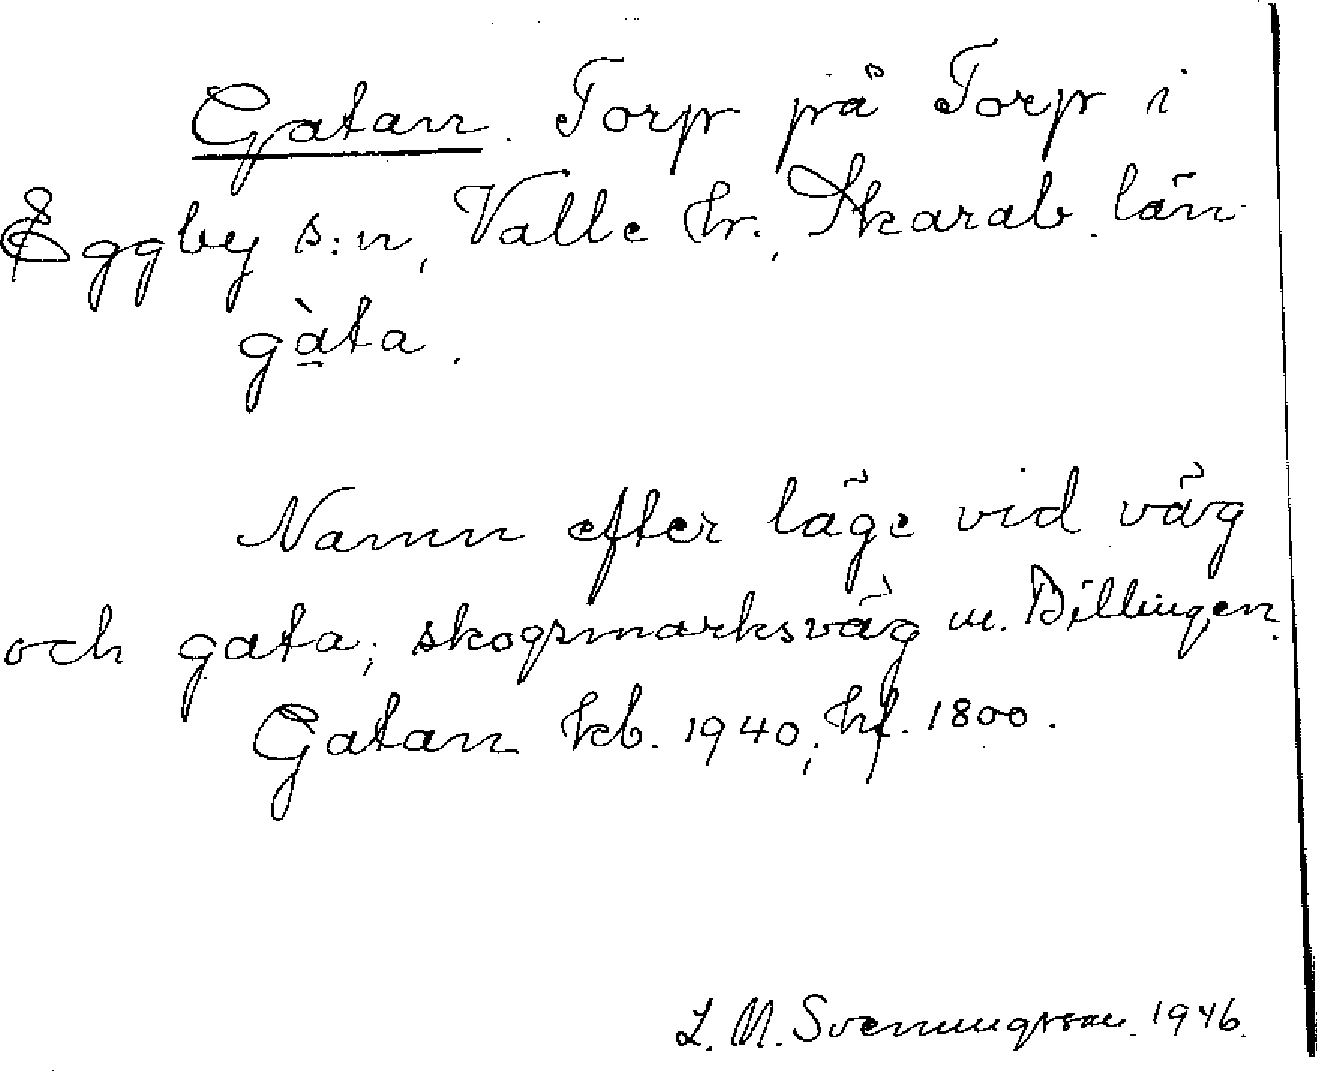 Gatan. Torp på Torp i
Eggby s:n, Valle hr., Skarab. län
gàta.
Namn efter läge vid väg
och gata; skogsmarksväg m. Billingen.
Gatan kb. 1940; hf. 1800.
L. M. Svenungsson. 1946.